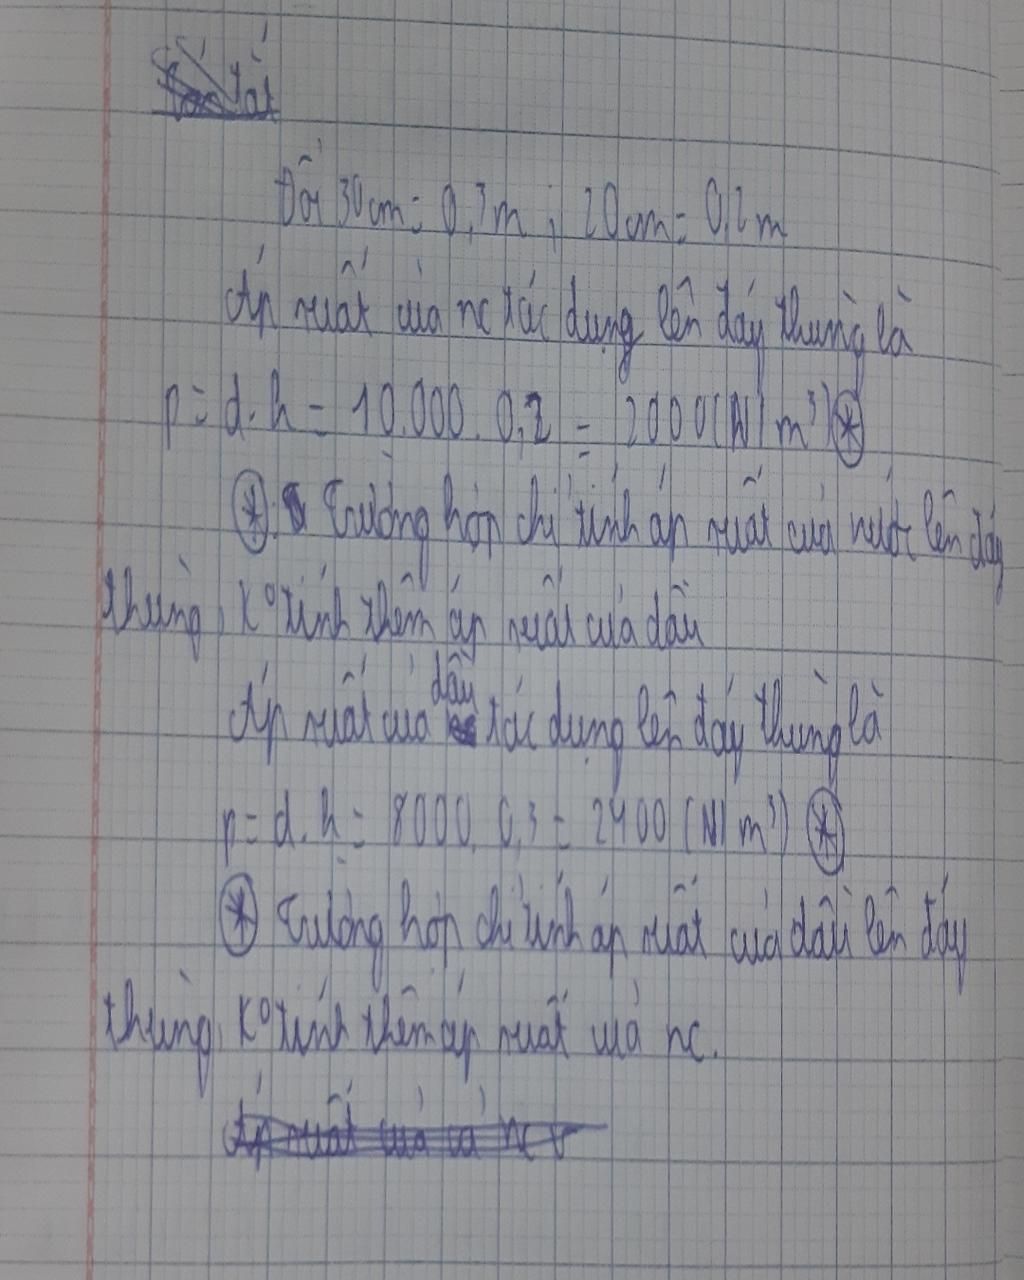 tắt
Đổi 30cm = 0,3m ; 20cm = 0,2m
Áp suất của nc tác dụng lên đáy thùng là
p = d.h = 10.000.0,2 = 2000(N/m³) *
* Trường hợp chỉ tính áp suất của nước lên đáy
thùng, Kº tính thêm áp suất của dầu
dầu
Áp suất của tác dụng lên đáy thùng là
p = d.h = 8000.0,3 = 2400 (N/m³) *
* Trường hợp chỉ tính áp suất của dầu lên đáy
thùng, Kº tính thêm áp suất của nc.
Áp suất của cả nc v